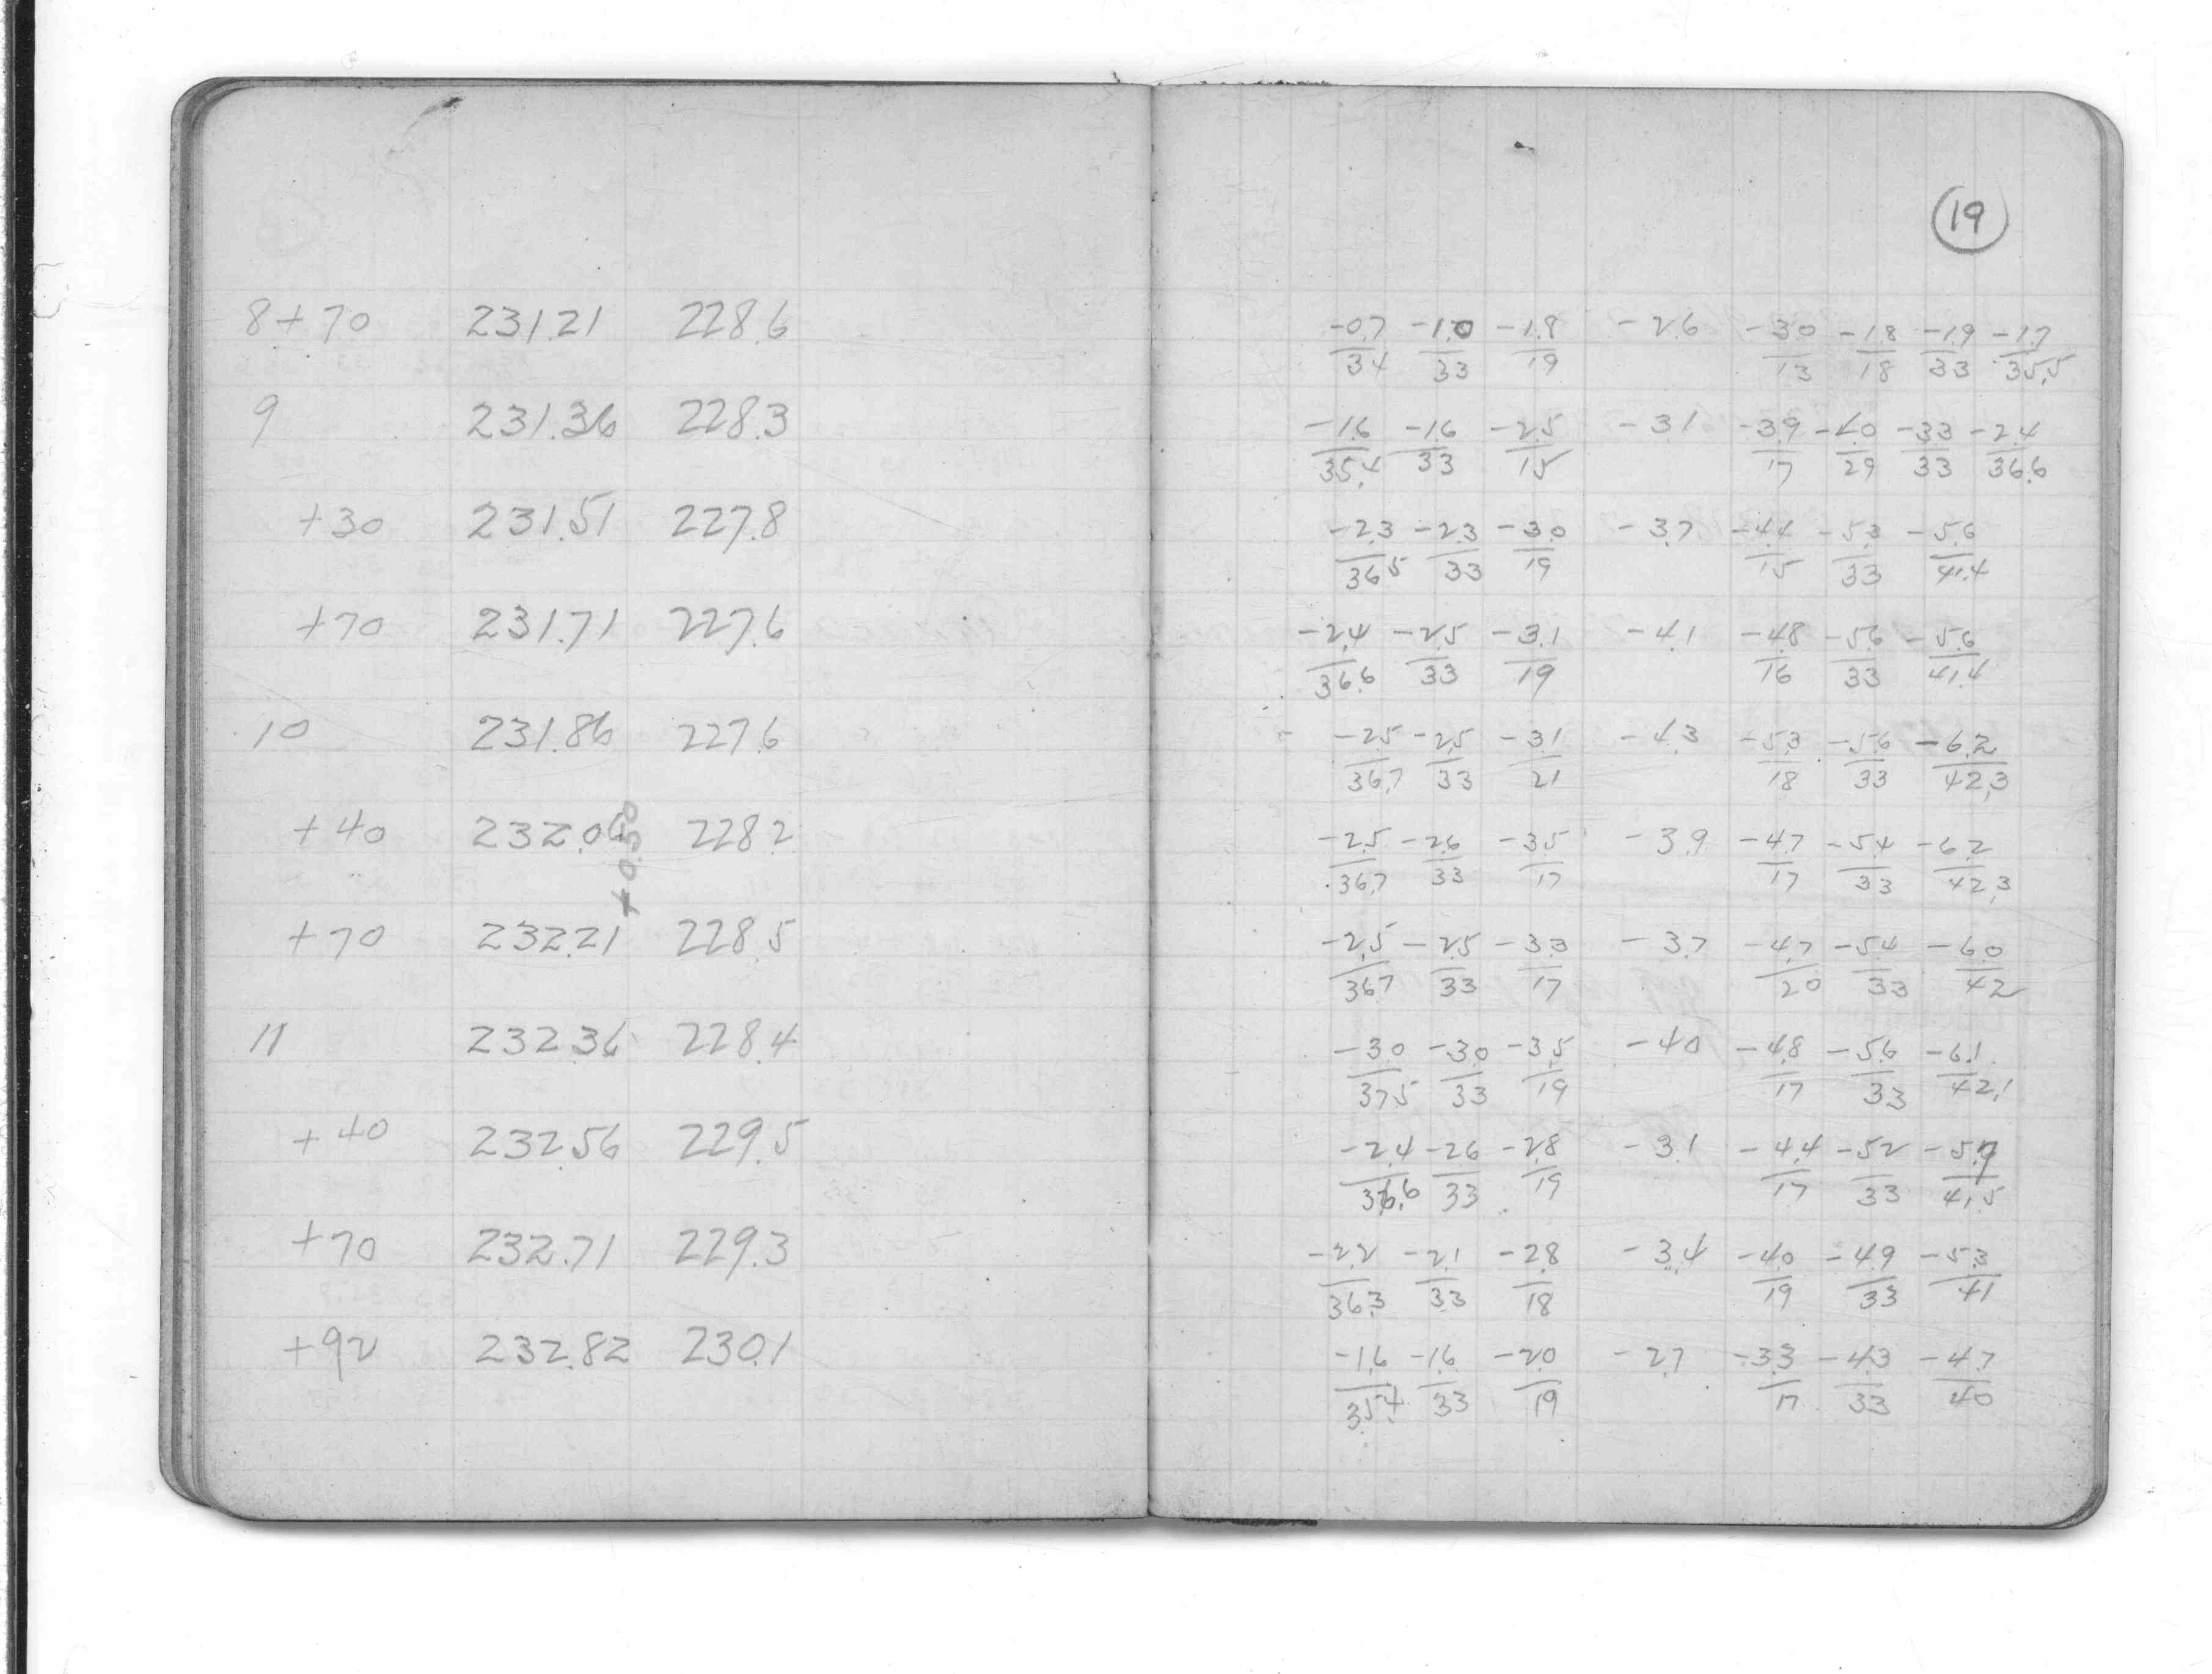 19
8+70 231.21 228.6 -0.7/34 -1.0/33 -1.8/19 -2.6 -3.0/13 -1.8/18 -1.9/33 -1.7/35.5
9 231.36 228.3 -1.6/35.4 -1.6/33 -2.5/15 -3.1 -3.9/17 -4.0/29 -3.3/33 -2.4/36.6
+30 231.51 227.8 -2.3/36.5 -2.3/33 -3.0/19 -3.7 -4.4/15 -5.3/33 -5.6/41.4
+70 231.71 227.6 -2.4/36.6 -2.5/33 -3.1/19 -4.1 -4.8/16 -5.6/33 -5.6/41.4
10 231.86 227.6 -2.5/36.7 -2.5/33 -3.1/21 -4.3 -5.3/18 -5.6/33 -6.2/42.3
+40 232.06 228.2 -2.5/36.7 -2.6/33 -3.5/17 -3.9 -4.7/17 -5.4/33 -6.2/42.3
+0.50
+70 232.21 228.5 -2.5/36.7 -2.5/33 -3.3/17 -3.7 -4.7/20 -5.4/33 -6.0/42
11 232.36 228.4 -3.0/37.5 -3.0/33 -3.5/19 -4.0 -4.8/17 -5.6/33 -6.1/42.1
+40 232.56 229.5 -2.4/36.6 -2.6/33 -2.8/19 -3.1 -4.4/17 -5.2/33 -5.7/41.5
+70 232.71 229.3 -2.2/36.3 -2.1/33 -2.8/18 -3.4 -4.0/19 -4.9/33 -5.3/41
+92 232.82 230.1 -1.6/35.4 -1.6/33 -2.0/19 -2.7 -3.3/17 -4.3/33 -4.7/40